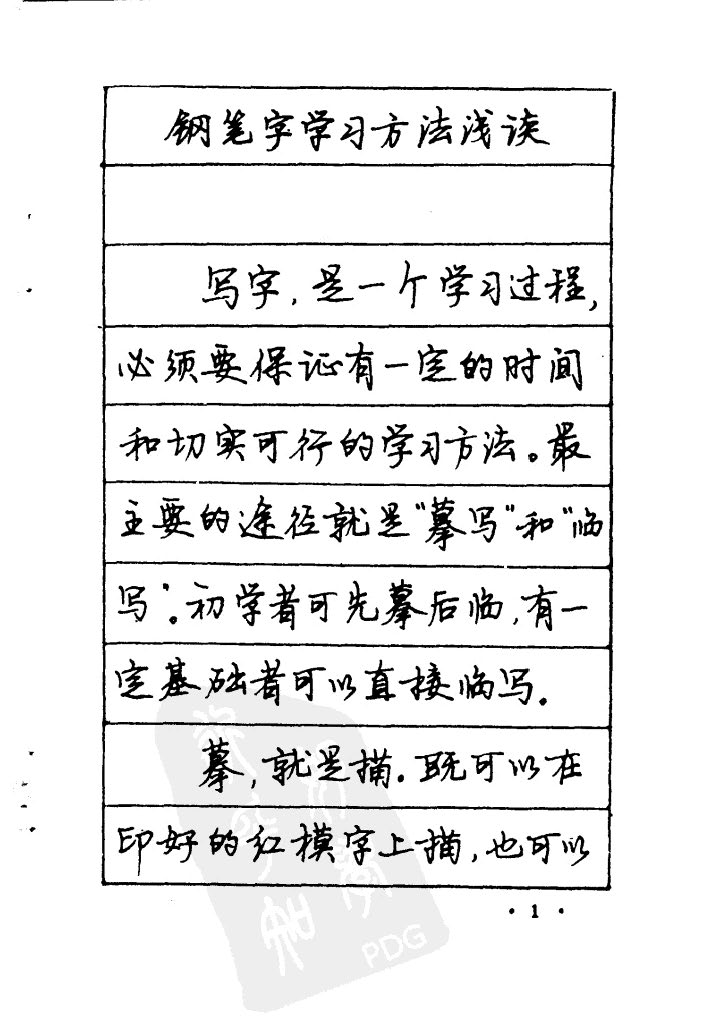 钢笔字学习方法浅谈
写字，是一个学习过程，
必须要保证有一定的时间
和切实可行的学习方法。最
主要的途径就是“摹写”和“临
写”。初学者可先摹后临，有一
定基础者可以直接临写．
摹，就是描．既可以在
印好的红模字上描，也可以
·1·
PDG